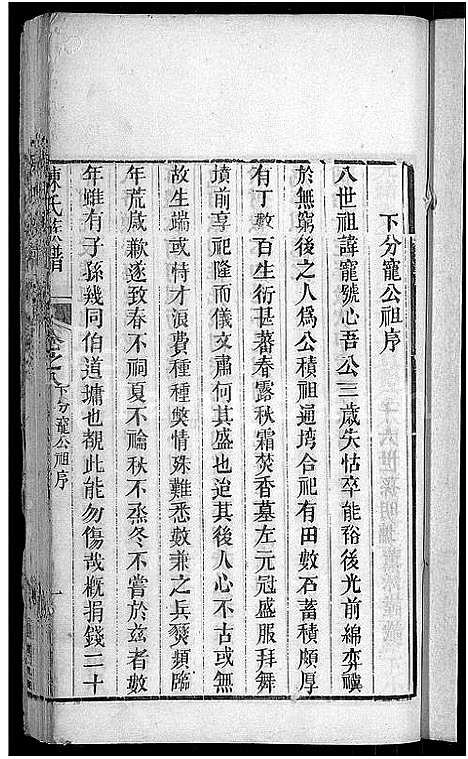 下分寵公祖序
八世祖諱寵號心吾公三歲失怙卒能裕後光前綿弈禩
於無窮後之人爲公積祖通塆合祀有田數石蓄積頗厚
有丁數百生衍甚蕃春露秋霜焚香墓左元冠盛服拜舞
墳前享祀隆而儀文肅何其盛也迨其後人心不古或無
故生端或恃才浪費種種獘情殊難悉數兼之兵燹頻臨
年荒歲歉遂致春不祠夏不禴秋不烝冬不嘗於兹者數
年雖有子孫幾同伯道墉也覩此能勿傷哉概捐錢二十
陳氏族譜
卷之八
下分寵公祖序
一